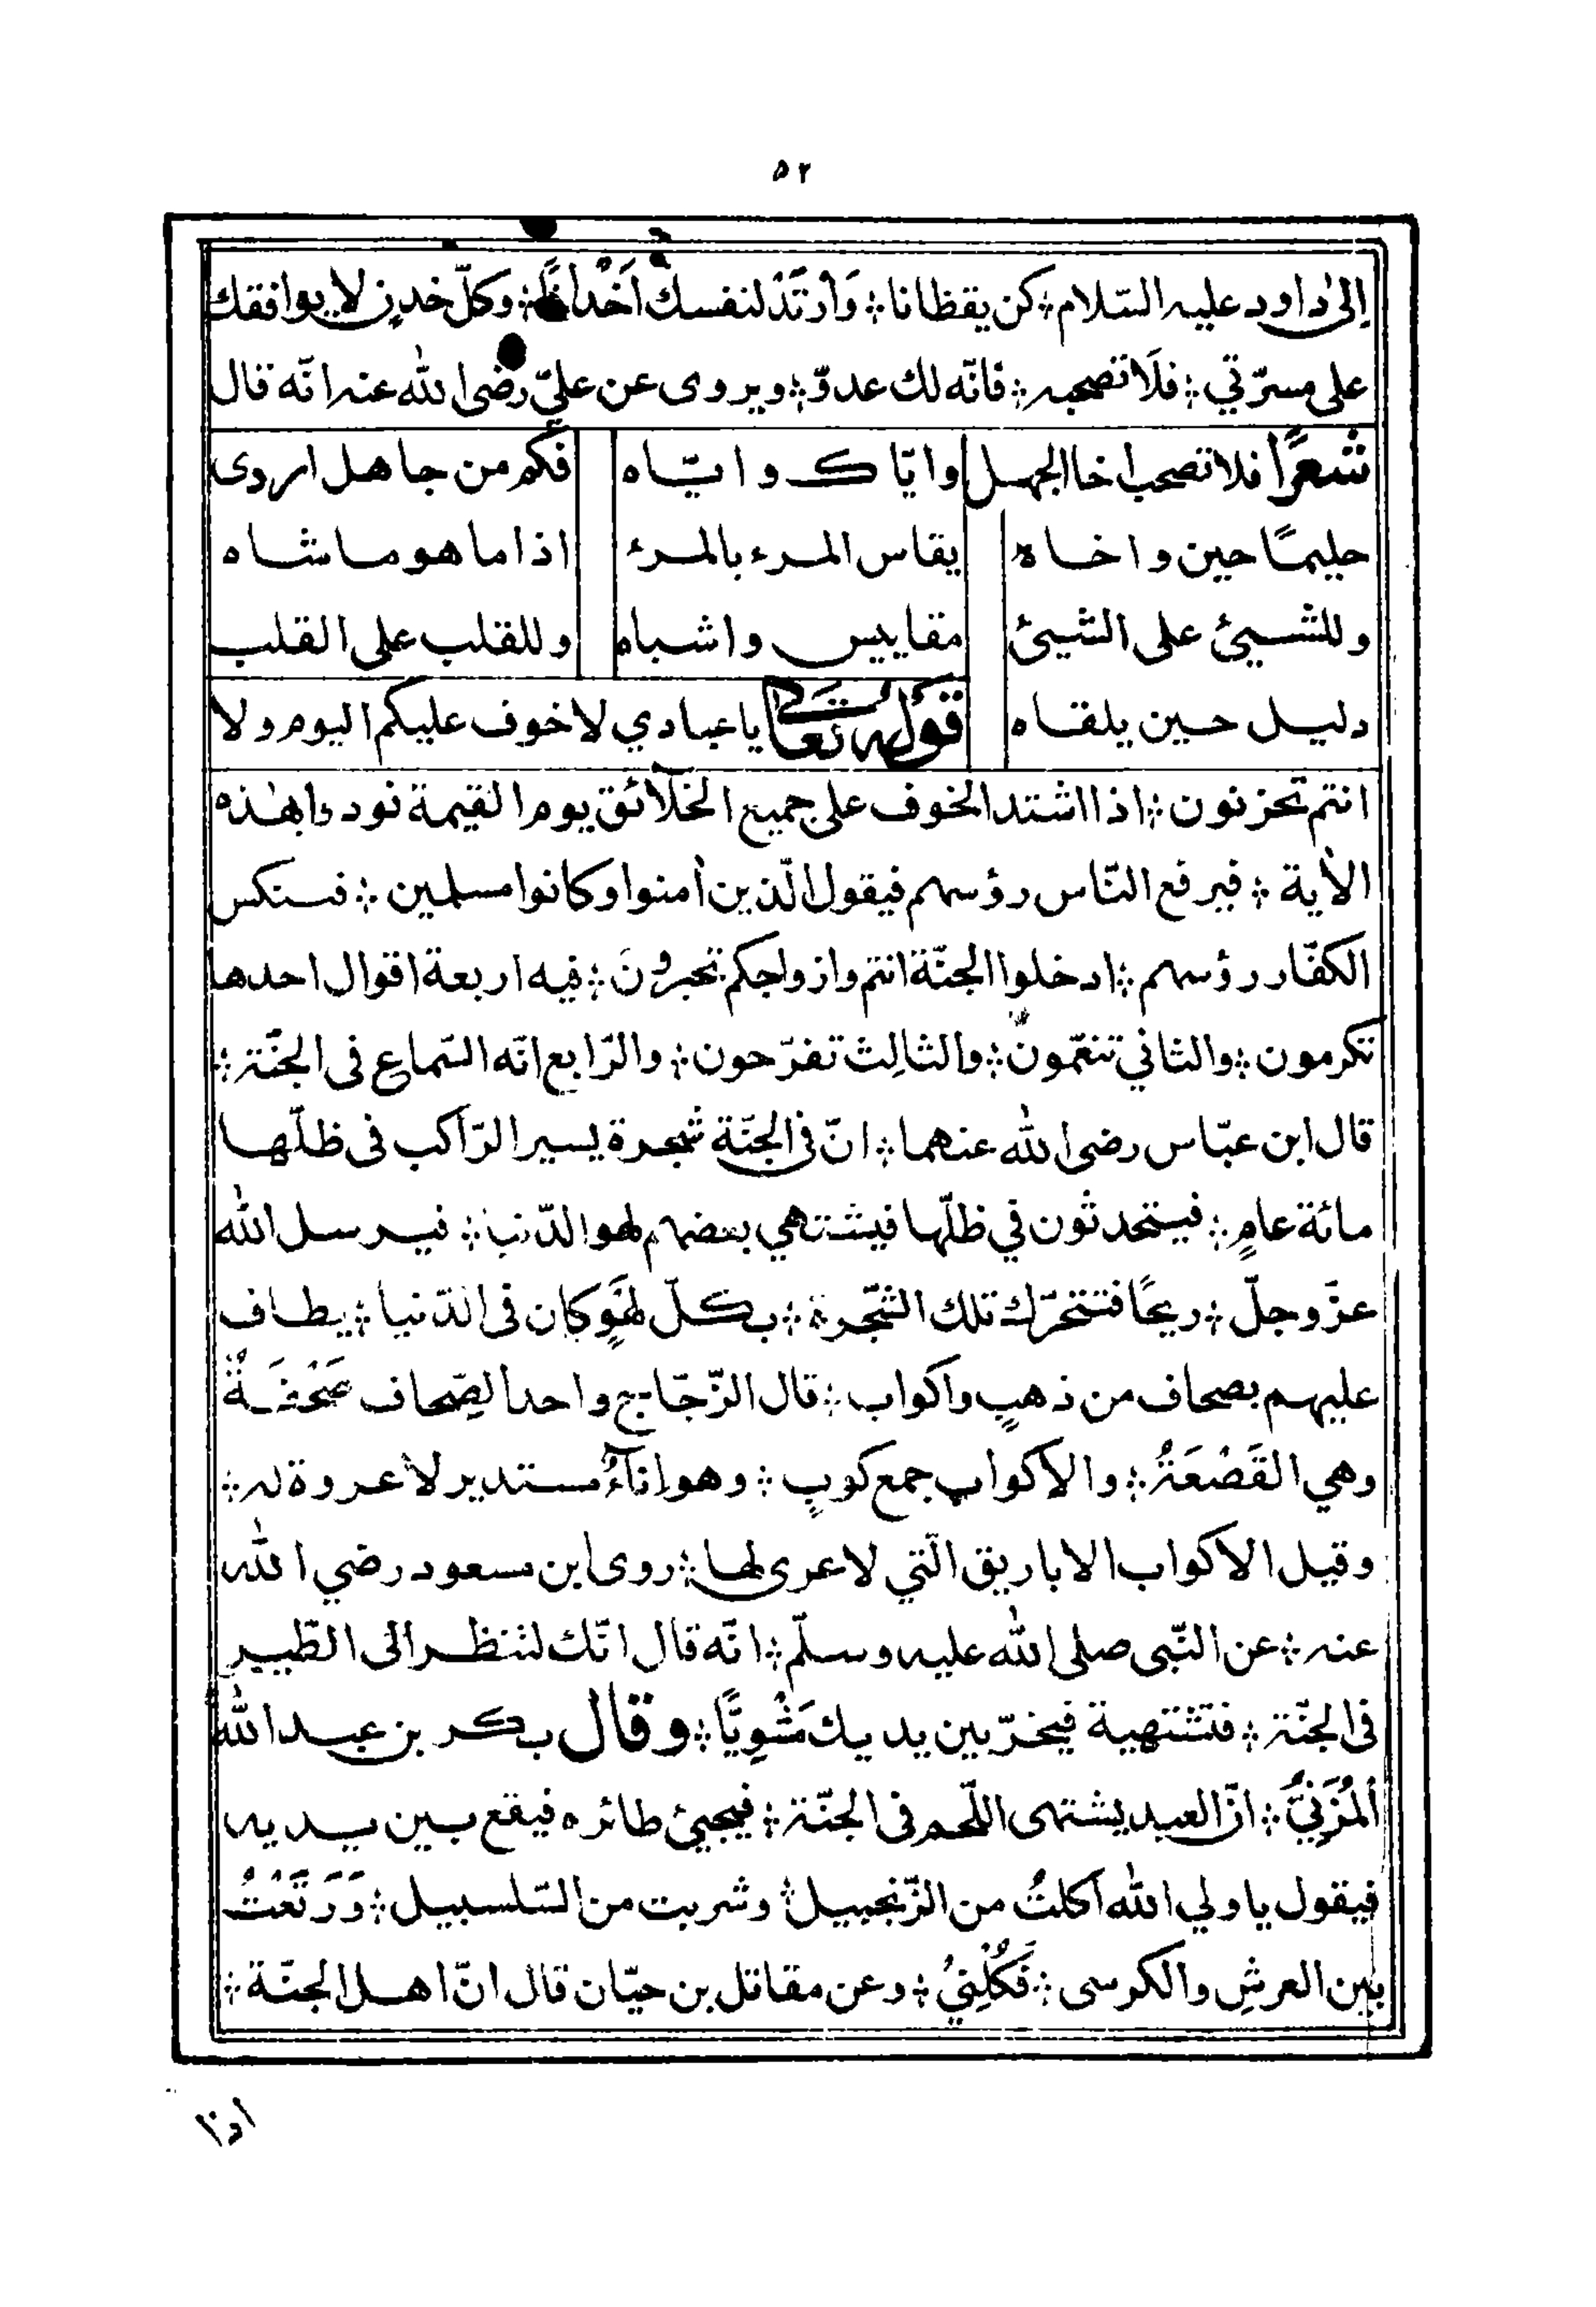 ٥٢
إلىٰ داود عليه السّلام ؞ كن يقظانا ؞ وَارْتَدْ لنفسك اَخْدانًا ؞ وكلّ خدنٍ لا يوافقك
على مسرّتي ؞ فلَا تصحبه ؞ فانّه لك عدوّ ؞ ويروى عن عليّ رضى الله عنه انّه قال
شعرًا فلا تصحب اخا الجهل وايّاك وايّاه فكم من جاهل اردى
حليمًا حين واخاه يقاس المرء بالمرء اذا ما هو ماشاه
وللشيئ على الشيئ مقاييس واشباه وللقلب على القلب
دليل حين يلقاه قوله تعالى يا عبادي لا خوف عليكم اليوم ولا
انتم تحزنون ؞ اذا اشتد الخوف على جميع الخلائق يوم القيمة نودءا بهٰذه
الاٰية ؞ فيرفع النّاس رؤسهم فيقول الّذين اٰمنوا وكانوا مسلمين ؞ فسنكس
الكفّار رؤسهم ؞ ادخلوا الجنّة انتم وازواجكم تحبرونَ ؞ فيه اربعة اقوال احدها
تكرمون ؞ والثاني تنعّمون ؞ والثالِث تفرّحون ؞ والرّابع انّه السّماع فى الجنّة ؞
قال ابن عبّاس رضى الله عنهما ؞ انّ فى الجنّة شجرة يسير الرّاكب فى ظلّها
مائة عامٍ ؞ فيتحدثون في ظلّها فيشتهي بعضهم لهو الدّنيا ؞ فيرسل الله
عزّ وجلّ ؞ ريحًا فتتحرّك تلك الشّجرة ؞ بكلّ لهَوٍ كان فى الدّنيا ؞ يطاف
عليهم بصحاف من ذهبٍ واكواب ؞ قال الزّجّاج واحد الصِّحاف صَحْفَةٌ
وهي القَصْعَةُ ؞ والاكواب جمع كوبٍ ؞ وهو اناۤءٌ مستدير لا عروة له ؞
وقيل الاكواب الاباريق الّتي لا عرى لها ؞ روى ابن مسعود رضي الله
عنه ؞ عن النّبى صلى الله عليه وسلّم ؞ انّه قال انّك لتنظر الى الطّيير
فى الجنّة ؞ فتشتهية فيخرّ بين يديك مَشْوِيًّا ؞ وقال بكر بن عبد الله
المُزَنِيُّ ؞ انّ العبد يشتهى اللّحم فى الجنّة ؞ فيجيئ طائره فيقع بين يديه
فيقول يا ولي الله اكلتُ من الزّنجبيل ؞ وشربت من السّلسبيل ؞ وَرَتَعْتُ
بين العرشِ والكرسى ؞ فَكُلْنِيْ ؞ وعن مقاتل بن حيّان قال انّ اهل الجنّة ؞
اذا